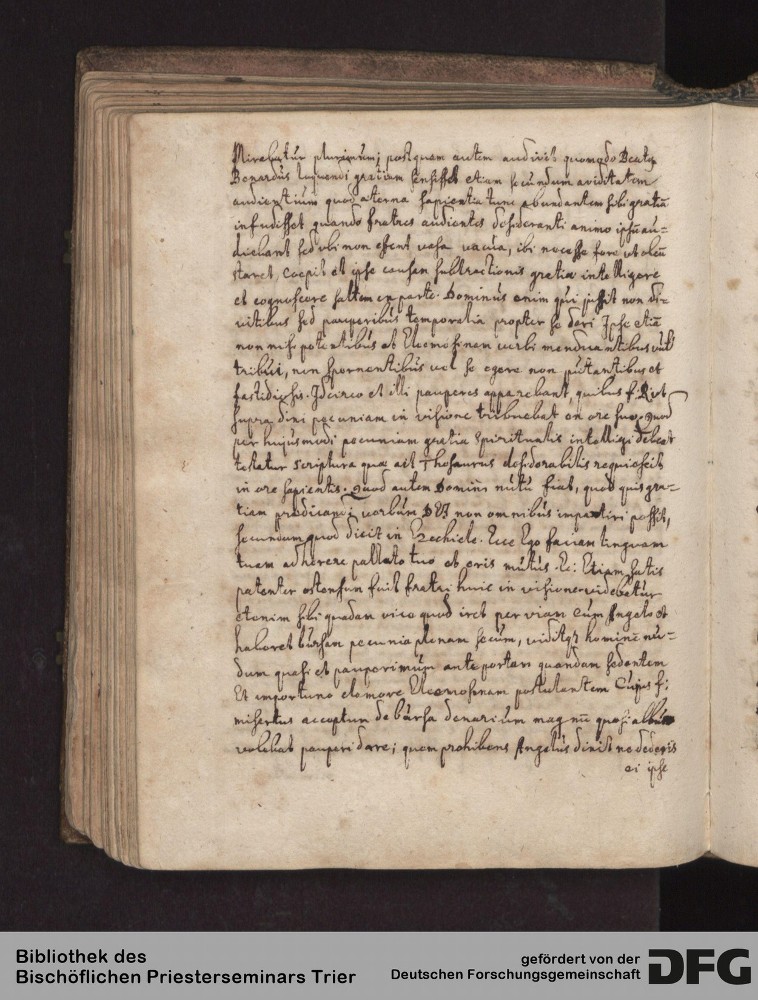 Mirabatur plurimum; postquam autem audivit quomodo Beatus
Bonardus loquendi gratiam sensisset etiam secundum aviditatem
audientium quod aterna sapientia tunc abundantem sibi gratiã
infudisset quando fratres audientes desideranti animo ipsũ au=
diebant sed ubi non essent vasa vacua, ibi necesse fore ut oleũ
staret, Coepit et ipse causam subtractionis gratiæ intelligere
et cognoscere saltem ex parte. Dominus enim qui jussit non di=
vitibus sed pauperibus temporalia propter se dari Ipse etiã
non nisi petentibus et Eleemosinam verbi mendicantibus vult
tribui, non spernentibus vel se egere non putantibus et
fastidiosis. Idcirco et illi pauperes apparebant, quibus f.
supra dini pecuniam in visione tribuebat ex ore suo, quod
per hujusmodi pecuniam gratia spiritualis intelligi debeat
testatur scriptura quæ ait Thesaurus desiderabilis requiescit
in ore sapientis. Quod autem Domini nutu fiat, quod quis gra=
tiam prædicandi verbum DEI non omnibus impartiri possit,
secundum quod dicit in Ezechiele. Ecce Ego faciam linguam
tuam adherere pallato tuo et eris mutus. &c: Etiam satis
patenter ostensum fuit fratri huic in visione videbatur
etenim sibi quadam vice quod iret per viam cum Angelo et
haberet bursam pecunia plenam secum, viditqz hominẽ nu=
dum quasi et pauperimum ante portam quandam sedentem
Et importuno clamore Eleemosinam postulantem Cujus f:
misertus acceptum de bursa denarium magnũ quasi album
volebat pauperi dare; quem prohibens Angelus dixit ne dederis
ei ipse
Bibliothek des
Bischöflichen Priesterseminars Trier
gefördert von der
Deutschen Forschungsgemeinschaft
DFG